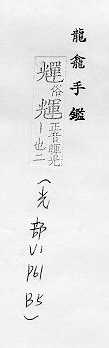 龍龕手鑑
俗輝正音暉光丨也二
(光部V1 P61 B5)